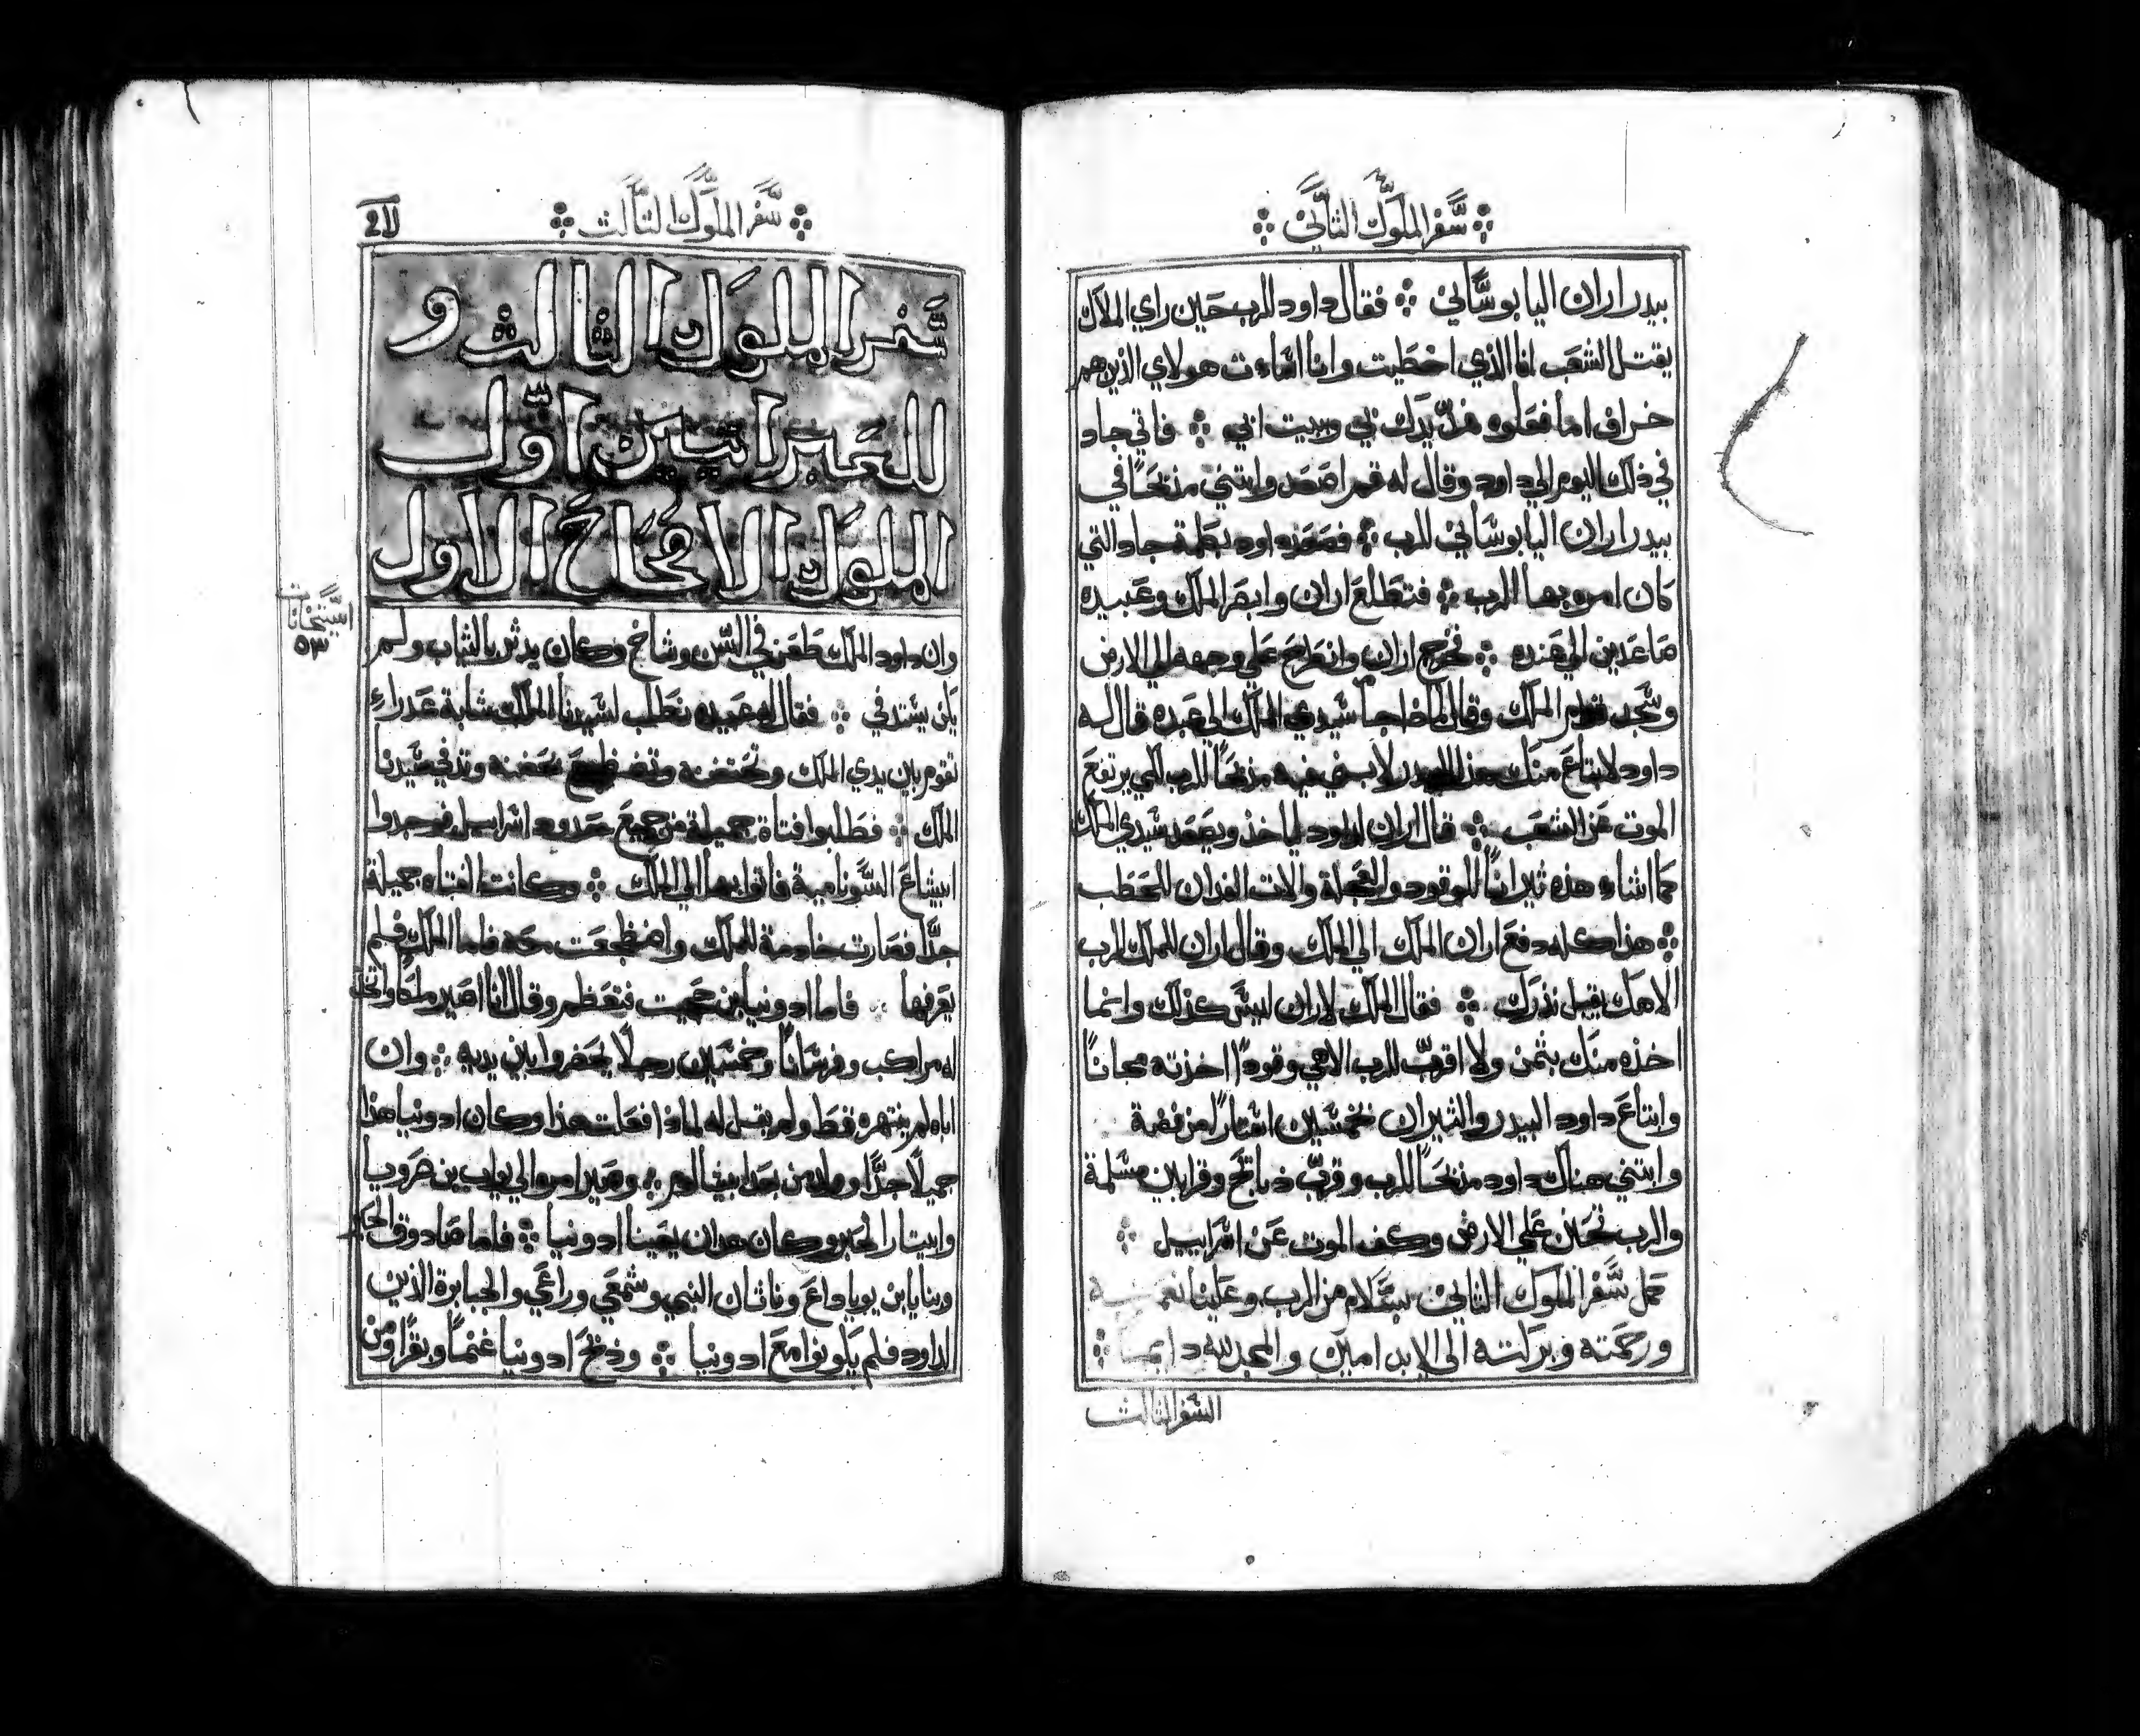 سفر الملوك الثاني
بيدر اران اليابوساني فقال داود للرب حين راي الملاك
يقتل الشعب انا الذي اخطيت وانا اساءت هولاي الذين هم
خراف اما فعلوه فلن يدك بي وبيت ابي فاتي جاد
في ذلك اليوم الي داود وقال له قم اصعد وابتني مذبحا في
بيدر اران اليابوساني للرب فصعد داود بكلمة جاد التي
كان امره بها الرب فتطلع اران وابصر الملك وعبيده
صاعدين الي عنده فخرج اران وانطرح علي وجهه الي الارض
وسجد قدام الملك وقال لماذا جا سيدي الملك الي عبده قال له
داود لابتاع منك هذا البيدر لابني فيه مذبحا للرب لكي يرتفع
الموت عن الشعب قال اران لداود لياخذ ويصعد سيدي الملك
كما شاء هذه ثيرانا للوقود والعجلة والات الفدان للحطب
هذا كله دفع اران الملك الي الملك وقال اران للملك الرب
الاهك يقبل نذرك فقال الملك لاران ليس كذلك وانما
اخذه منك بثمن ولا اقرب للرب الاهي وقودا اخذته مجانا
وابتاع داود البيدر والثيران بخمسين استارا من فضة
وابتني هناك داود مذبحا للرب وقرب ذبايح وقرابين مسلمة
والرب تحنن علي الارض وكف الموت عن اسراييل
كمل سفر الملوك الثاني بسلام من الرب وعلينا
ورحمته وبركته الي الابد امين والمجد لله دايما
السفر الثالث
سفر الملوك الثالث
سفر الملوك الثالث و
للعبرانيين اول
الملوك الاصحاح الاول
وان داود الملك طعن في السن وشاخ وكان يدثر بالثياب ولم
يكن يستدفي فقال له عبيده نطلب لسيدنا الملك شابة عدراء
تقوم بين يدي الملك وتحتضنه وتضطجع بحضنه وتدفي سيدنا
الملك فطلبوا فتاة جميلة من جميع حدود اسراييل فوجدوا
ابيشاع السونامية فاتوا بها الي الملك وكانت الفتاه جميلة
جدا فصارت خادمة للملك واضطجعت معه فاما الملك فلم
يعرفها فاما ادونيا بن حجيت فتعظم وقال انا اصير ملكا واتخذ
له مراكب وفرسانا وخمسين رجلا يحضروا بين يديه وان
اباه لم ينتهره قط ولم يقل له لماذا فعلت هذا وكان ادونيا هذا
جميلا جدا وولد من بعد ابيشالم وصير امره الي يواب بن صرويا
وابيتار الحبر وكان عوان يعينا ادونيا فاما صادوق الحبر
وبنايا بن يوياداع وناثان النبي وشمعي وراعي والجبابرة الذين
لداود فلم يكونوا مع ادونيا وذبح ادونيا غنما وبقرا ومن